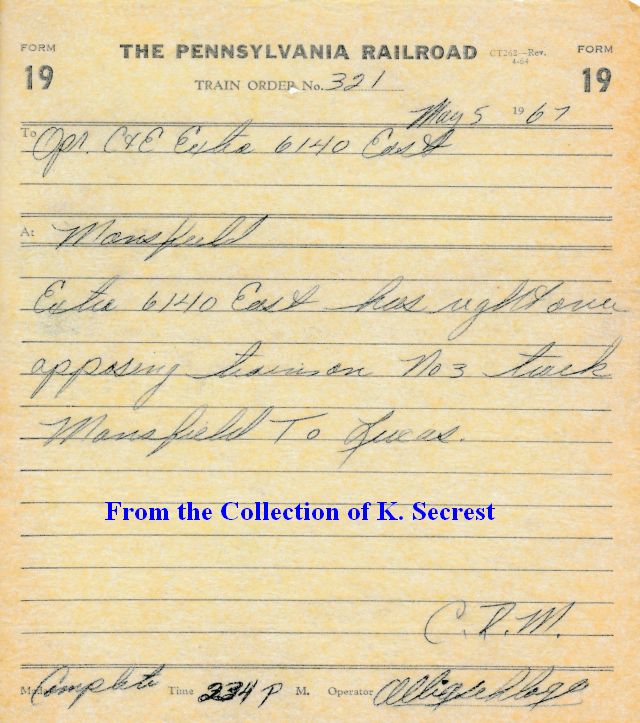 FORM 19 THE PENNSYLVANIA RAILROAD CT262—Rev. 4-64 FORM 19
TRAIN ORDER No. 321
May 5 1967
To Opr. C&E Extra 6140 East
At Mansfield
Extra 6140 East has right over
opposing trains on No 3 track
Mansfield To Lucas.
From the Collection of K. Secrest
C. R. M.
Made Complete Time 234 P M. Operator